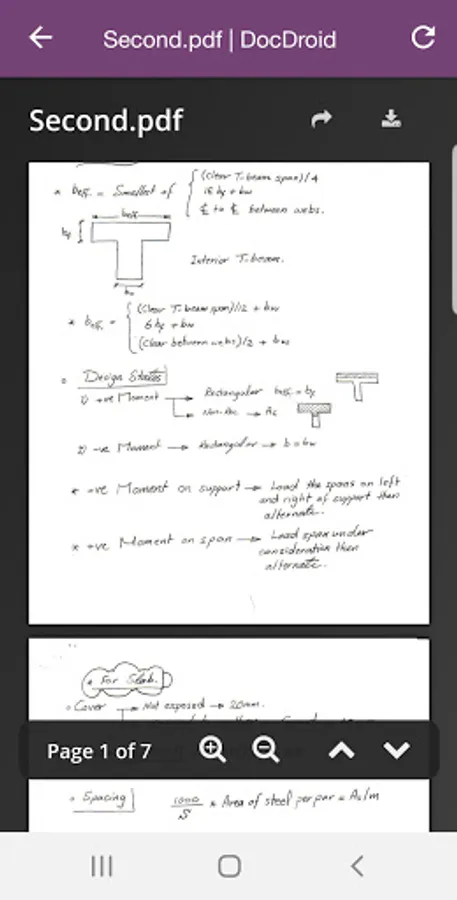 Second.pdf | DocDroid
Second.pdf
* beff. = Smallest of { (Clear T. beam span)/4
16 hf + bw
℄ to ℄ between webs.
beff
hf
bw
Interior T. beam.
* beff. = { (Clear T. beam span)/12 + bw
6 hf + bw
(Clear between webs)/2 + bw
Design
1) +ve Moment → Rectangular
→ Ac
2) -ve Moment → Rectangular → b = bw
* -ve Moment on support → Load the spans on left
and right of support then
alternate.
* +ve Moment on span → Load span under
consideration then
alternate.
* For Slab.
Cover → Not exposed → 20mm.
Page 1 of 7
Spacing 1000/S * Area of steel per bar = As/m